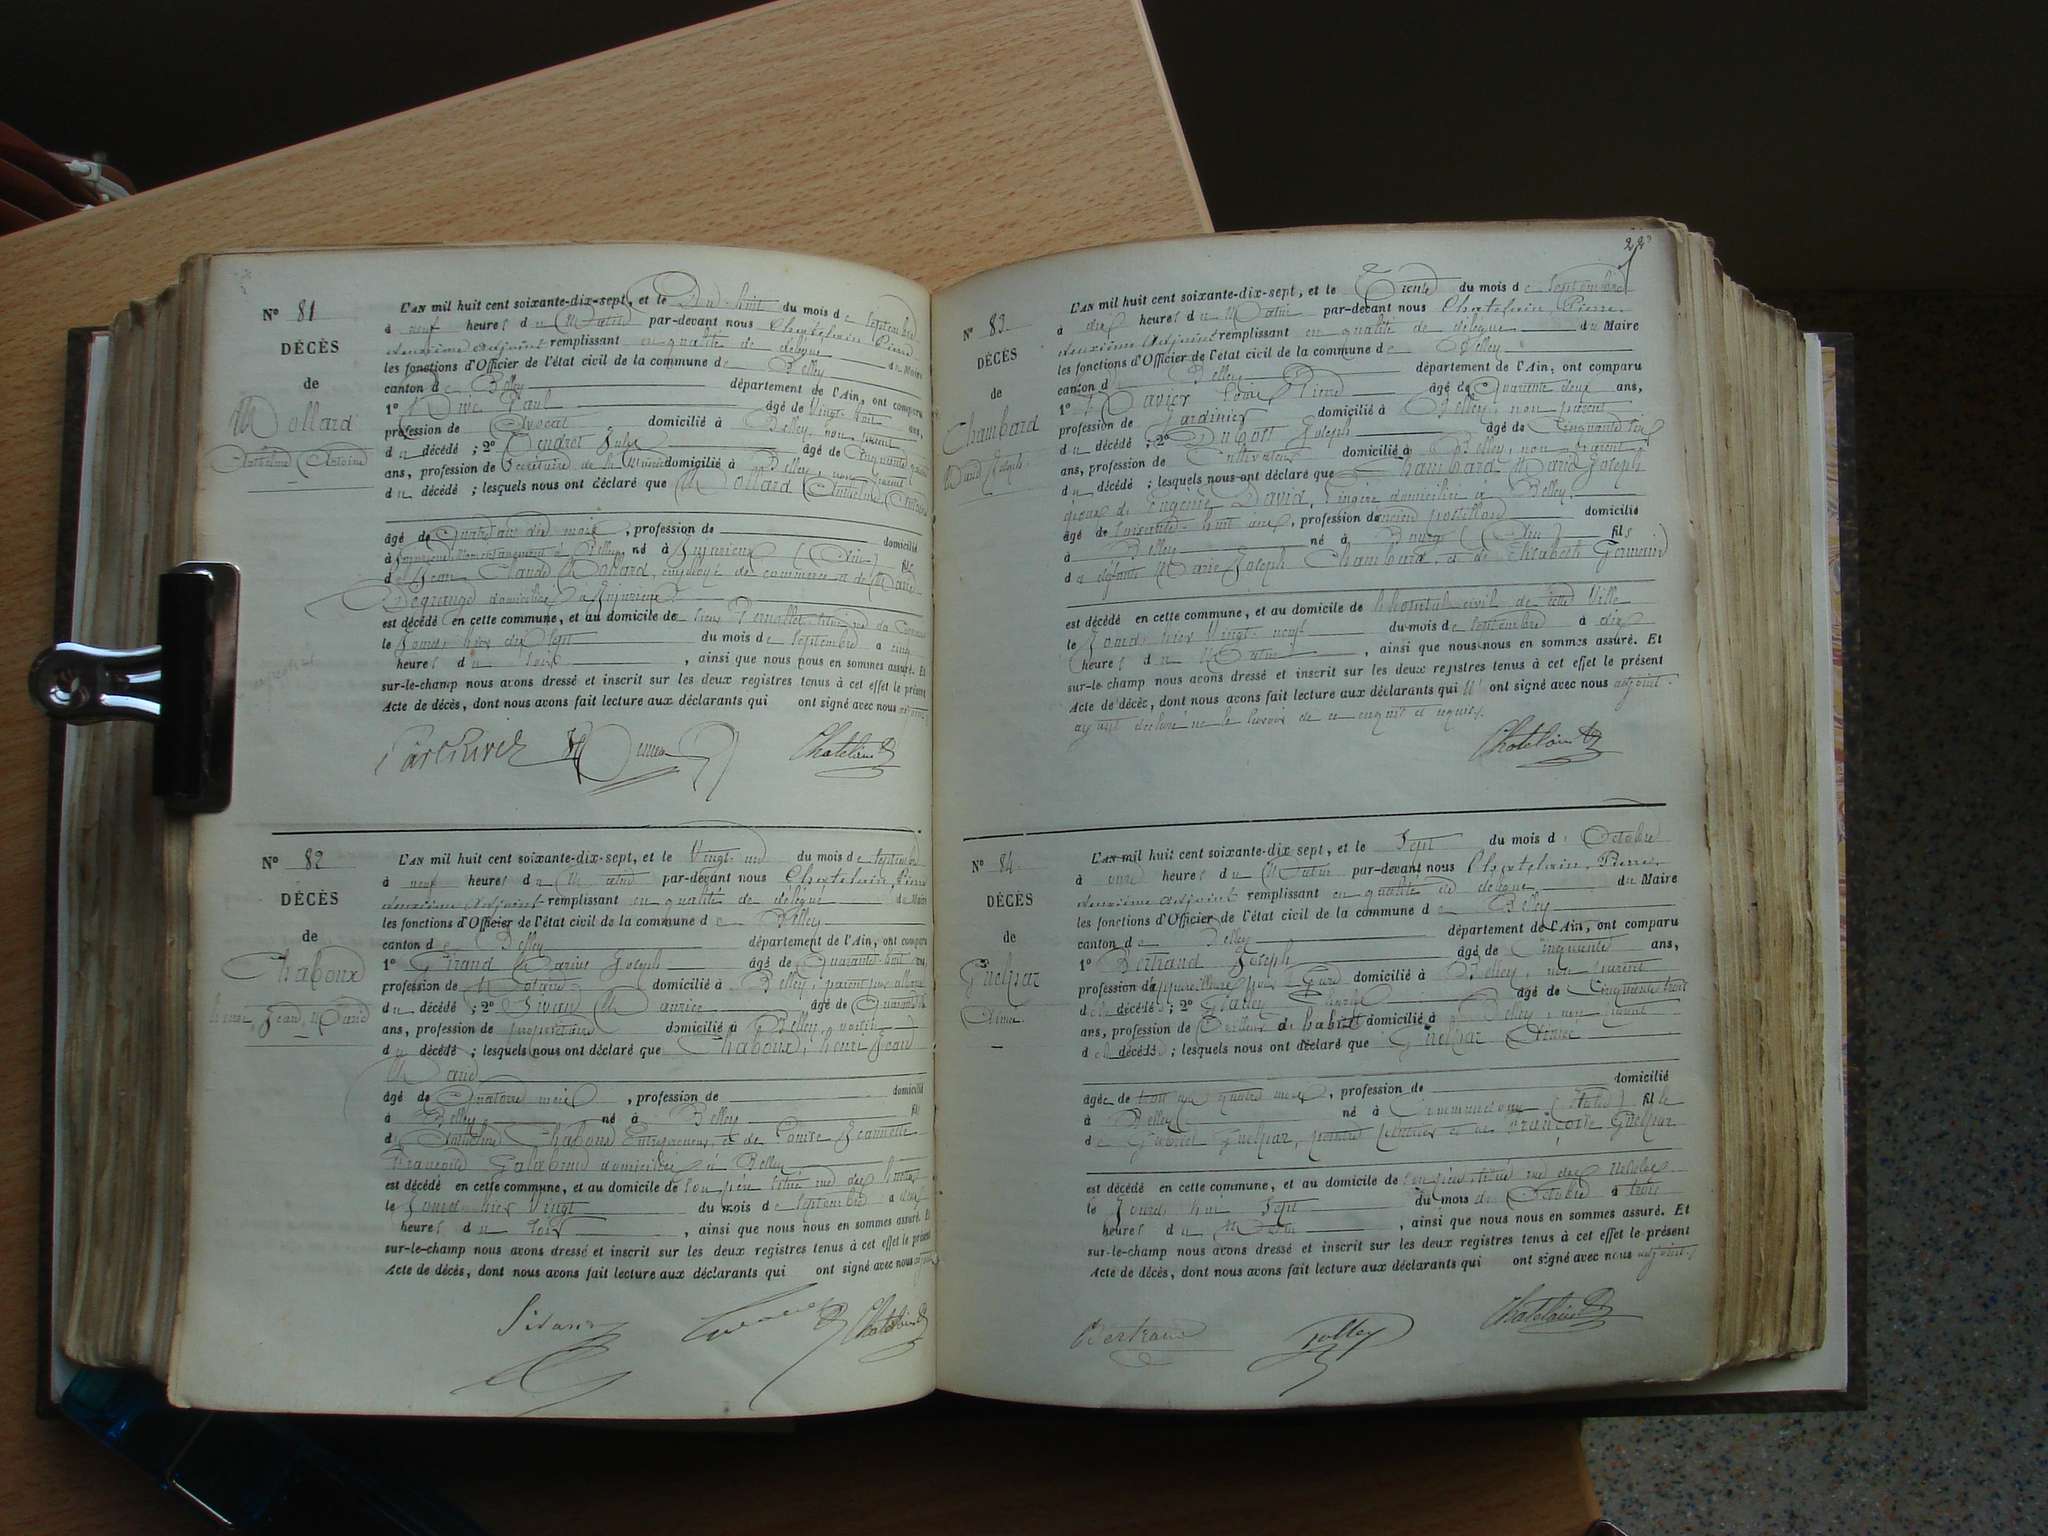 Nº 81
DÉCÈS
de
Mollard
Anthelme Antoine
L'AN mil huit cent soixante-dix-sept, et le Dix-huit du mois de septembre
à neuf heures du Matin par-devant nous Chatelain Pierre
deuxième adjoint remplissant en qualité de délégué du Maire
les fonctions d'Officier de l'état civil de la commune de Belley
canton de Belley département de l'Ain, ont comparu
1º Paul âgé de vingt-huit ans,
profession de Avocat domicilié à Belley, non parent
du décédé ; 2º Jules âgé de Cinquante
ans, profession de Secrétaire de la Mairie domicilié à Belley, non parent
du décédé ; lesquels nous ont déclaré que Mollard Anthelme Antoine
âgé de Quatre ans dix mois, profession de domicilié
à Belley né à Jujurieux (Ain) fils
de Jean Claude Mollard, employé de commerce et de Marie
domiciliés à Jujurieux
est décédé en cette commune, et au domicile de
le Jour d'hier dix sept du mois de septembre à cinq
heures du soir, ainsi que nous nous en sommes assuré. Et
sur-le-champ nous avons dressé et inscrit sur les deux registres tenus à cet effet le présent
Acte de décès, dont nous avons fait lecture aux déclarants qui ont signé avec nous adjoint
Chatelain
Nº 82
DÉCÈS
de
Chaboux
henri, Jean, Marie
L'AN mil huit cent soixante-dix-sept, et le Vingt-un du mois de septembre
à neuf heures du Matin par-devant nous Chatelain, Pierre
deuxième adjoint remplissant en qualité de délégué du Maire
les fonctions d'Officier de l'état civil de la commune de Belley
canton de Belley département de l'Ain, ont comparu
1º Girand Marius Joseph âgé de Quarante-huit ans,
profession de Notaire domicilié à Belley, parent par alliance
du décédé ; 2º Sivan Maurice âgé de Quarante
ans, profession de propriétaire domicilié à Belley, voisin
du décédé ; lesquels nous ont déclaré que Chaboux, henri Jean
Marie
âgé de Quatorze mois, profession de domicilié
à Belley né à Belley fils
d' Anthelme Chaboux Entrepreneur, et de Louise Jeannette
Françoise domiciliés à Belley
est décédé en cette commune, et au domicile de son père situé rue des
le Jour d'hier Vingt du mois de septembre à
heures du soir, ainsi que nous nous en sommes assuré. Et
sur-le-champ nous avons dressé et inscrit sur les deux registres tenus à cet effet le présent
Acte de décès, dont nous avons fait lecture aux déclarants qui ont signé avec nous adjoint
Sivan Chatelain
Nº 83
DÉCÈS
de
Chambard
Marie Joseph
L'AN mil huit cent soixante-dix-sept, et le Trente du mois de septembre
à dix heures du Matin par-devant nous Chatelain, Pierre
deuxième adjoint remplissant en qualité de délégué du Maire
les fonctions d'Officier de l'état civil de la commune de Belley
canton de Belley département de l'Ain, ont comparu
1º Louis Pierre âgé de Quarante deux ans,
profession de Jardinier domicilié à Belley, non parent
du décédé ; 2º Joseph âgé de Cinquante six
ans, profession de Cultivateur domicilié à Belley, non parent
du décédé ; lesquels nous ont déclaré que Chambard Marie Joseph
époux de Eugénie David, lingère domiciliée à Belley
âgé de soixante-huit ans, profession de ancien postillon domicilié
à Belley né à Bourg (Ain) fils
du défunt Marie Joseph Chambard, et de Elisabeth Germain
est décédé en cette commune, et au domicile de l'hôpital civil de cette Ville
le Jour d'hier Vingt-neuf du mois de septembre à dix
heures du Matin, ainsi que nous nous en sommes assuré. Et
sur-le-champ nous avons dressé et inscrit sur les deux registres tenus à cet effet le présent
Acte de décès, dont nous avons fait lecture aux déclarants qui n'ont signé avec nous adjoint
ayant déclaré ne le savoir de ce enquis et requis.
Chatelain
Nº 84
DÉCÈS
de
Guelpaz
L'AN mil huit cent soixante-dix sept, et le Sept du mois d' Octobre
à onze heures du Matin par-devant nous Chatelain, Pierre
deuxième adjoint remplissant en qualité de délégué du Maire
les fonctions d'Officier de l'état civil de la commune de Belley
canton de Belley département de l'Ain, ont comparu
1º Bertrand Joseph âgé de Cinquante ans,
profession d'appareilleur pour Gaz domicilié à Belley, non parent
de la décédée ; 2º âgé de Cinquante trois
ans, profession de Tailleur de habits domicilié à Belley, non parent
de la décédée ; lesquels nous ont déclaré que Guelpaz
âgée de trois ans quatre mois, profession de domicilié
à Belley né à (Italie) fille
de Gabriel Guelpaz, peintre plâtrier et de Françoise Guelpaz
est décédé en cette commune, et au domicile de son père, situé rue des
le Jourd'hui Sept du mois d' Octobre à trois
heures du Matin, ainsi que nous nous en sommes assuré. Et
sur-le-champ nous avons dressé et inscrit sur les deux registres tenus à cet effet le présent
Acte de décès, dont nous avons fait lecture aux déclarants qui ont signé avec nous adjoint.
Bertrand Chatelain